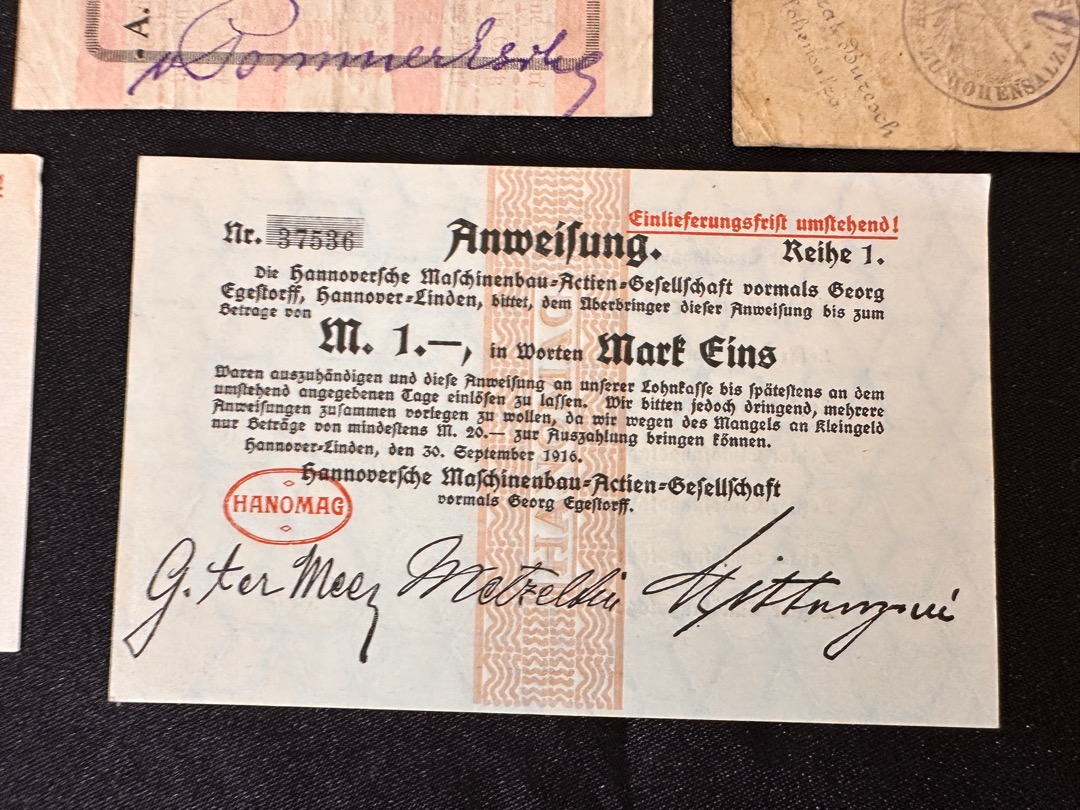 · A.
v Pommer Esche
HOHENSALZA
Einlieferungsfrist umstehend!
Nr. 37536
Anweisung.
Reihe 1.
Die Hannoversche Maschinenbau-Actien-Gesellschaft vormals Georg
Egestorff, Hannover-Linden, bittet, dem Überbringer dieser Anweisung bis zum
Betrage von
M. 1.—, in Worten Mark Eins
Waren auszuhändigen und diese Anweisung an unserer Lohnkasse bis spätestens an dem
umstehend angegebenen Tage einlösen zu lassen. Wir bitten jedoch dringend, mehrere
Anweisungen zusammen vorlegen zu wollen, da wir wegen des Mangels an Kleingeld
nur Beträge von mindestens M. 20.— zur Auszahlung bringen können.
Hannover-Linden, den 30. September 1916.
Hannoversche Maschinenbau-Actien-Gesellschaft
vormals Georg Egestorff.
HANOMAG
HANOMAG
G. ter Meer Metzeltin